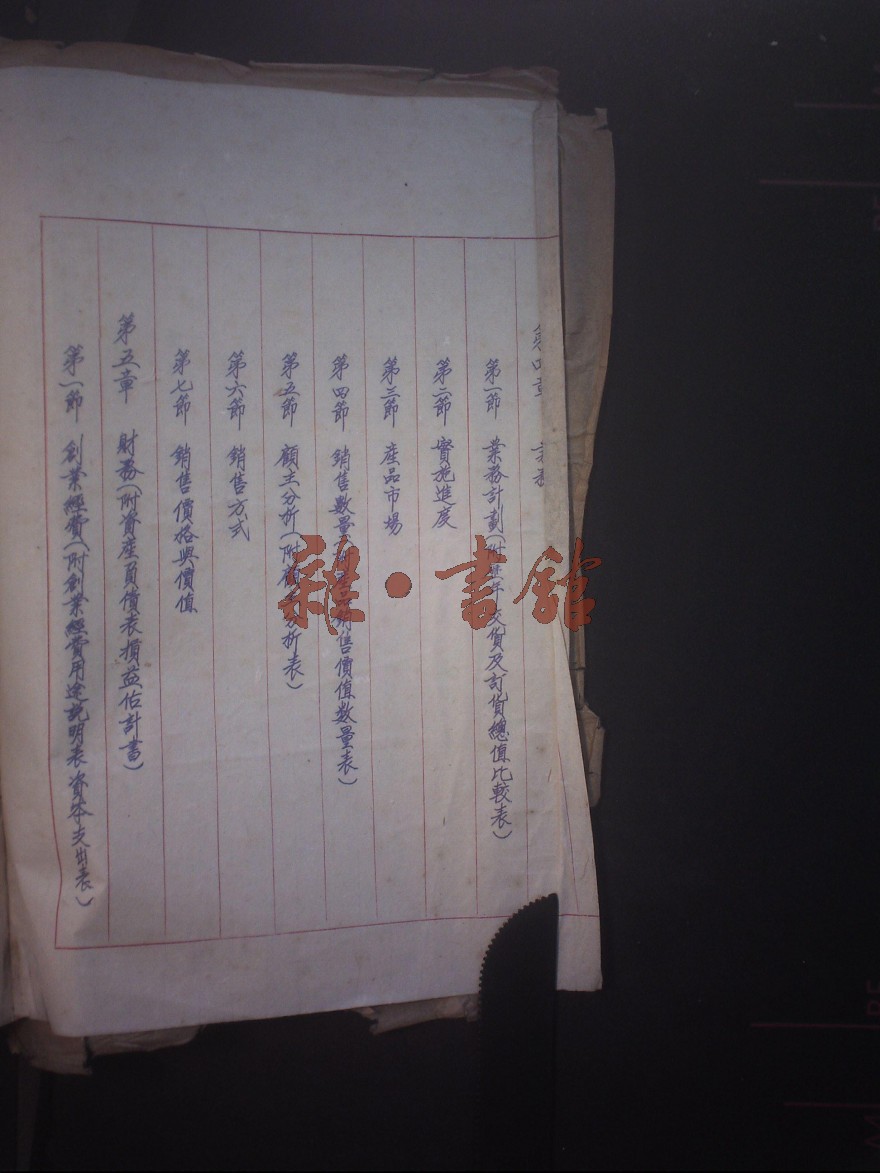 第四章 業務
第一節 業務計劃(附歷年交貨及訂貨總值比較表)
第二節 實施進度
第三節 產品市場
第四節 銷售數量(附產品銷售價值數量表)
第五節 顧主分析(附顧主分析表)
第六節 銷售方式
第七節 銷售價格與價值
第五章 財務(附資產負債表損益估計書)
第一節 創業經費(附創業經費用途說明表資本支出表)
雜·書館